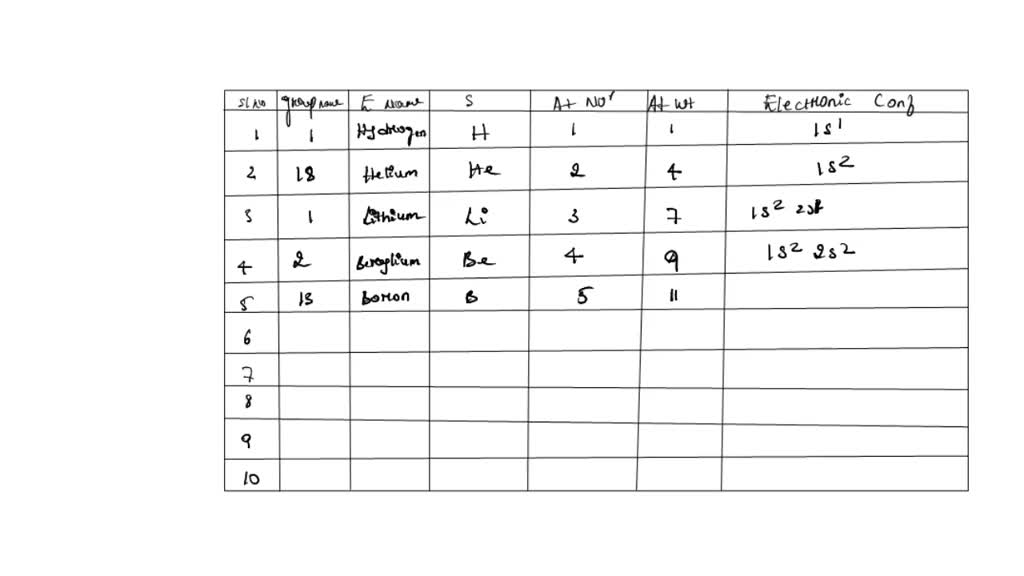 Sl No group name E Name S At No' At wt Electronic Conf
1 1 Hydrogen H 1 1 1s¹
2 18 Helium He 2 4 1s²
3 1 Lithium Li 3 7 1s²
4 2 Be 4 9 1s² 2s²
5 13 Boron B 5 11
6
7
8
9
10